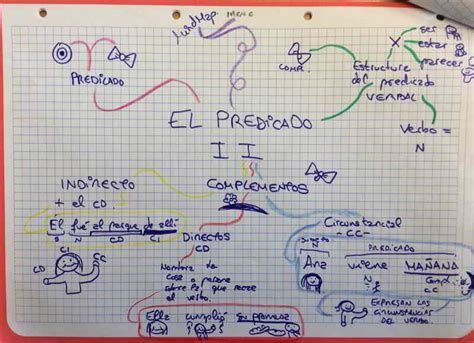 MindMap
PREDICADO
COMP.
X
ser
estar
parecer
Estructura
del predicado
VERBAL
Verbo =
N
EL PREDICADO
II
INDIRECTO
+ el CD
COMPLEMENTOS
El fué al parque de allí
S N CD CI
CD CI
DIRECTOS
CD
Nombra la
cosa o persona
sobre la que recae
el verbo.
Ella cumplió su promesa
Circunstancial
-CC-
Sujeto PREDICADO
Ana viene MAÑANA
N CC
EXPRESAN LAS
CIRCUNSTANCIAS
DEL VERBO.